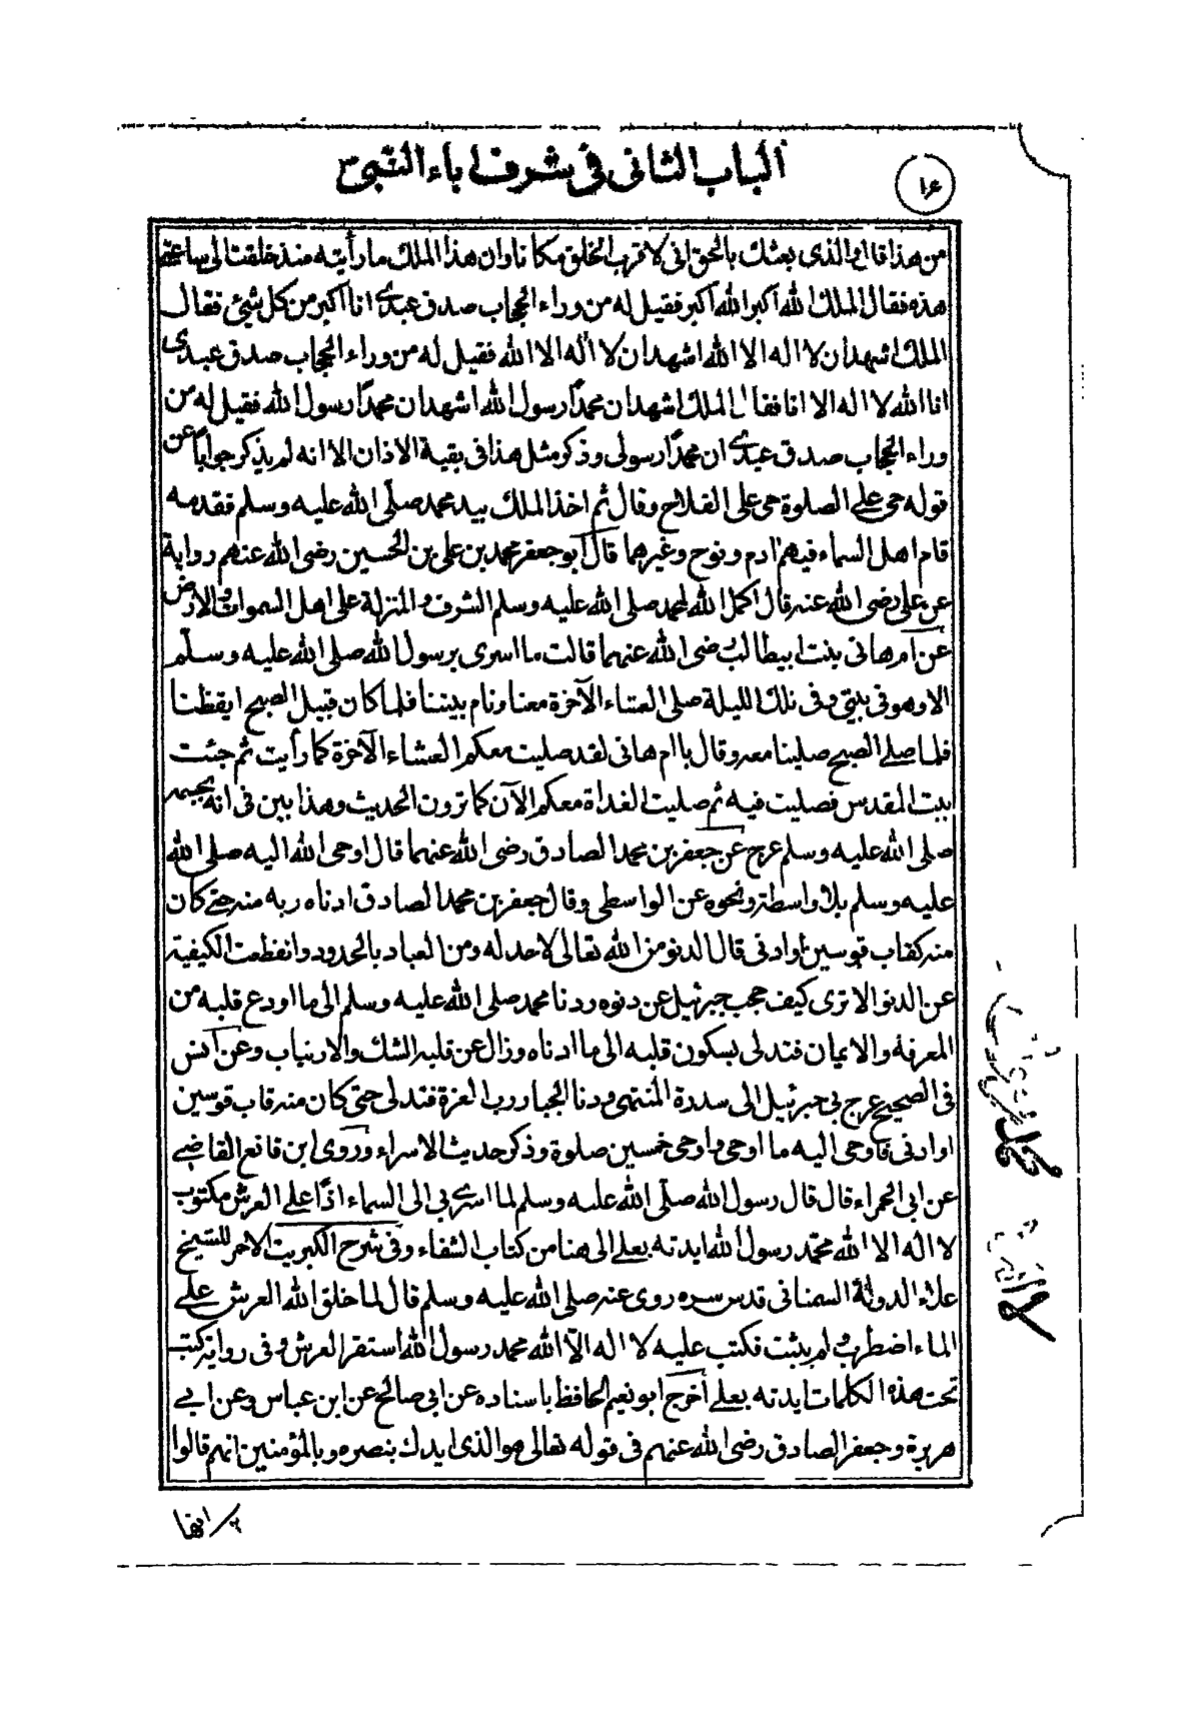 الباب الثانى فى شرف اباء النبى ص
١٤
من هذا قال والذى بعثك بالحق انى لاقرب الخلق مكانا وان هذا الملك ما رأيته منذ خلقت الى ساعتى
هذه فقال الملك الله اكبر الله اكبر فقيل له من وراء الحجاب صدق عبدى انا اكبر من كل شيئ فقال
الملك اشهد ان لا اله الا الله اشهد ان لا اله الا الله فقيل له من وراء الحجاب صدق عبدى
انا الله لا اله الا انا فقال الملك اشهد ان محمدًا رسول الله اشهد ان محمدًا رسول الله فقيل له من
وراء الحجاب صدق عبدى ان محمدًا رسولى وذكر مثل هذا فى بقية الاذان الا انه لم يذكر جوابًا عن
قوله حى على الصلوة حى على الفلاح وقال ثم اخذ الملك بيد محمد صلى الله عليه وسلم فقدمه
قام اهل السماء فيهم ادم ونوح وغيرهما قال ابو جعفر محمد بن على بن الحسين رضى الله عنهم رواية
عن على رضى الله عنه قال اكمل الله لمحمد صلى الله عليه وسلم الشرف والمنزلة على اهل السموات والارض
عن ام هانى بنت ابيطالب رضى الله عنهما قالت ما اسرى برسول الله صلى الله عليه وسلم
الا وهو فى بيتى وفى تلك الليلة صلى العشاء الآخرة معنا ونام بيننا فلما كان قبيل الصبح ايقظنا
فلما صلى الصبح صلينا معه وقال يا ام هانى لقد صليت معكم العشاء الآخرة كما رأيت ثم جئت
بيت المقدس فصليت فيه ثم صليت الغداة معكم الآن كما ترون الحديث وهذا بين فى انه بجسمه
صلى الله عليه وسلم عرج عن جعفر بن محمد الصادق رضى الله عنهما قال اوحى الله اليه صلى الله
عليه وسلم بلا واسطة ونحوه عن الواسطى وقال جعفر بن محمد الصادق ادناه ربه منه حتى كان
منه كقاب قوسين او ادنى قال الدنو من الله تعالى لا حد له ومن العباد بالحدود وانقطعت الكيفية
عن الدنو الا ترى كيف حجب جبرئيل عن دنوه ودنا محمد صلى الله عليه وسلم الى ما اودع قلبه من
المعرفة والايمان فتدلى بسكون قلبه الى ما ادناه وزال عن قلبه الشك والارتياب وعن انس
فى الصحيح عرج بى جبرئيل الى سدرة المنتهى ودنا الجبار رب العزة فتدلى حتى كان منه قاب قوسين
او ادنى فاوحى اليه ما اوحى واوحى خمسين صلوة وذكر حديث الاسراء وروى ابن قانع القاضى
عن ابى الحمراء قال قال رسول الله صلى الله عليه وسلم لما اسرى بى الى السماء اذا على العرش مكتوب
لا اله الا الله محمد رسول الله ايدته بعلى الى هنا من كتاب الشفاء وفى شرح الكبريت الاحمر للشيخ
علاء الدولة السمنانى قدس سره روى عنه صلى الله عليه وسلم قال لما خلق الله العرش على
الماء اضطرب ولم يثبت فكتب عليه لا اله الا الله محمد رسول الله استقر العرش وفى رواية كتب
تحت هذه الكلمات ايدته بعلى اخرج ابو نعيم الحافظ باسناده عن ابى صالح عن ابن عباس وعن ابى
هريرة وجعفر الصادق رضى الله عنهم فى قوله تعالى هو الذى ايدك بنصره وبالمؤمنين انهم قالوا